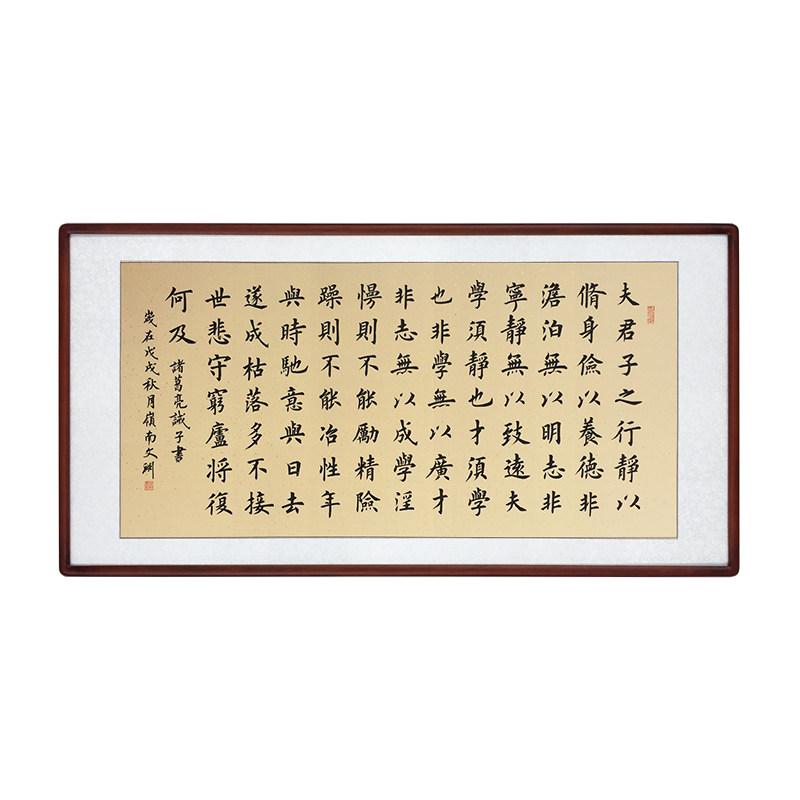 夫君子之行靜以
脩身儉以養德非
澹泊無以明志非
寧靜無以致遠夫
學須靜也才須學
也非學無以廣才
非志無以成學淫
慢則不能勵精險
躁則不能冶性年
與時馳意與日去
遂成枯落多不接
世悲守窮廬將復
何及
諸葛亮誡子書
歲在戊戌秋月嶺南文澍